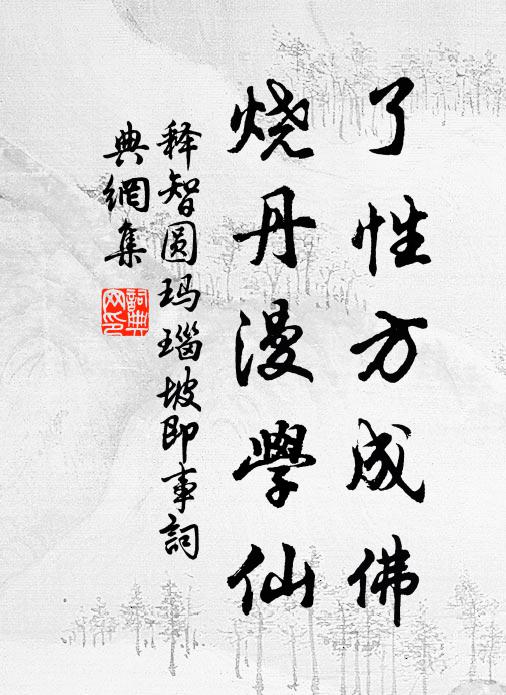 了性方成佛
烧丹漫學仙
释智圆玛瑙坡即事詞
典網集
詞典網印